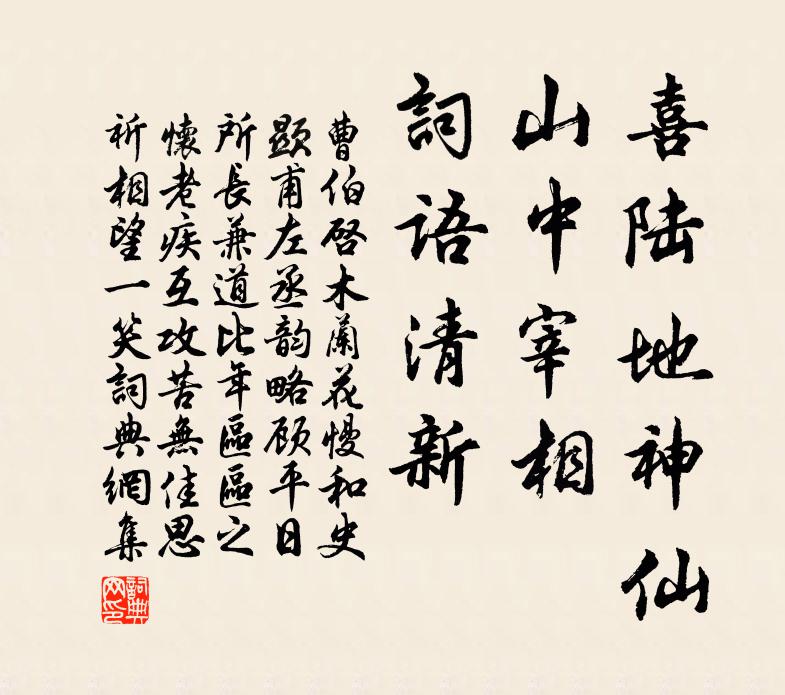 喜陆地神仙
山中宰相
詞语清新
曹伯啓木蘭花慢和史
顯甫左丞韵略顾平日
所長兼道比年區區之
懷老疾互攻苦無佳思
祈相望一笑詞典網集
詞典网印